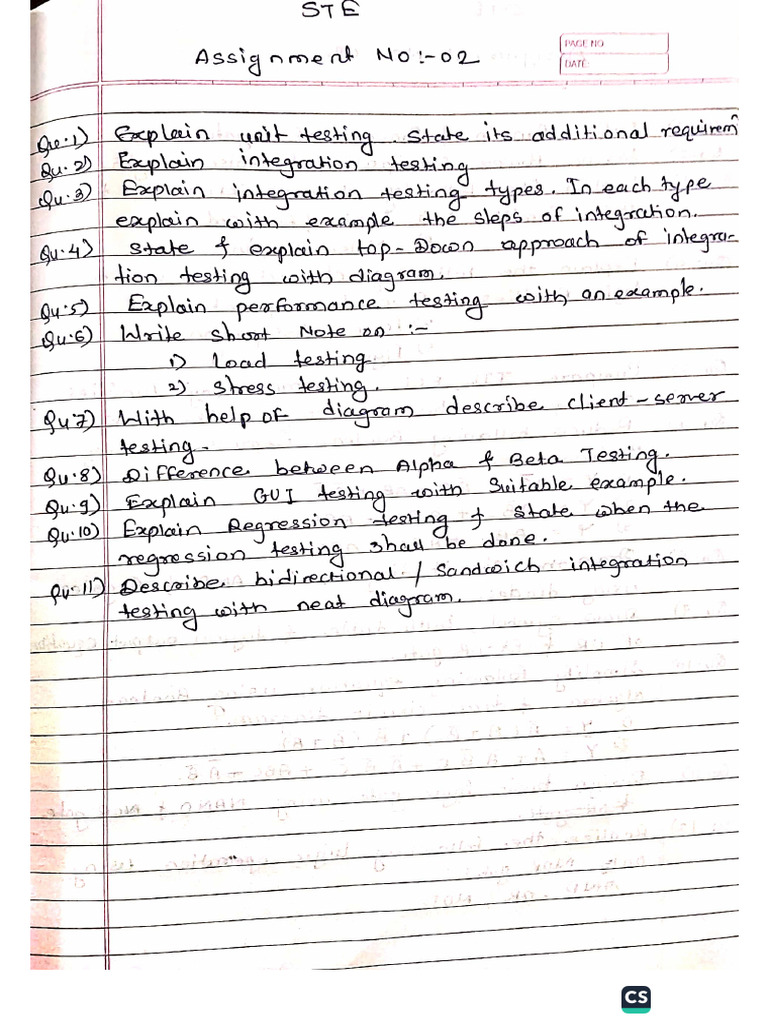 STE
Assignment No:-02
PAGE NO
DATE:
Qu.1) Explain unit testing state its additional requirem
Qu.2) Explain integration testing
Qu.3) Explain integration testing types. In each type
explain with example the steps of integration.
Qu.4) State & explain top-Down approach of integra-
tion testing with diagram.
Qu.5) Explain performance testing with an example.
Qu.6) Write short Note on :-
1) Load testing
2) Stress testing.
Qu.7) With help of diagram describe client-server
testing.
Qu.8) Difference between Alpha & Beta Testing.
Qu.9) Explain GUI testing with Suitable example.
Qu.10) Explain Regression testing & State when the
regression testing shall be done.
Qu.11) Describe bidirectional / Sandwich integration
testing with neat diagram.
CS